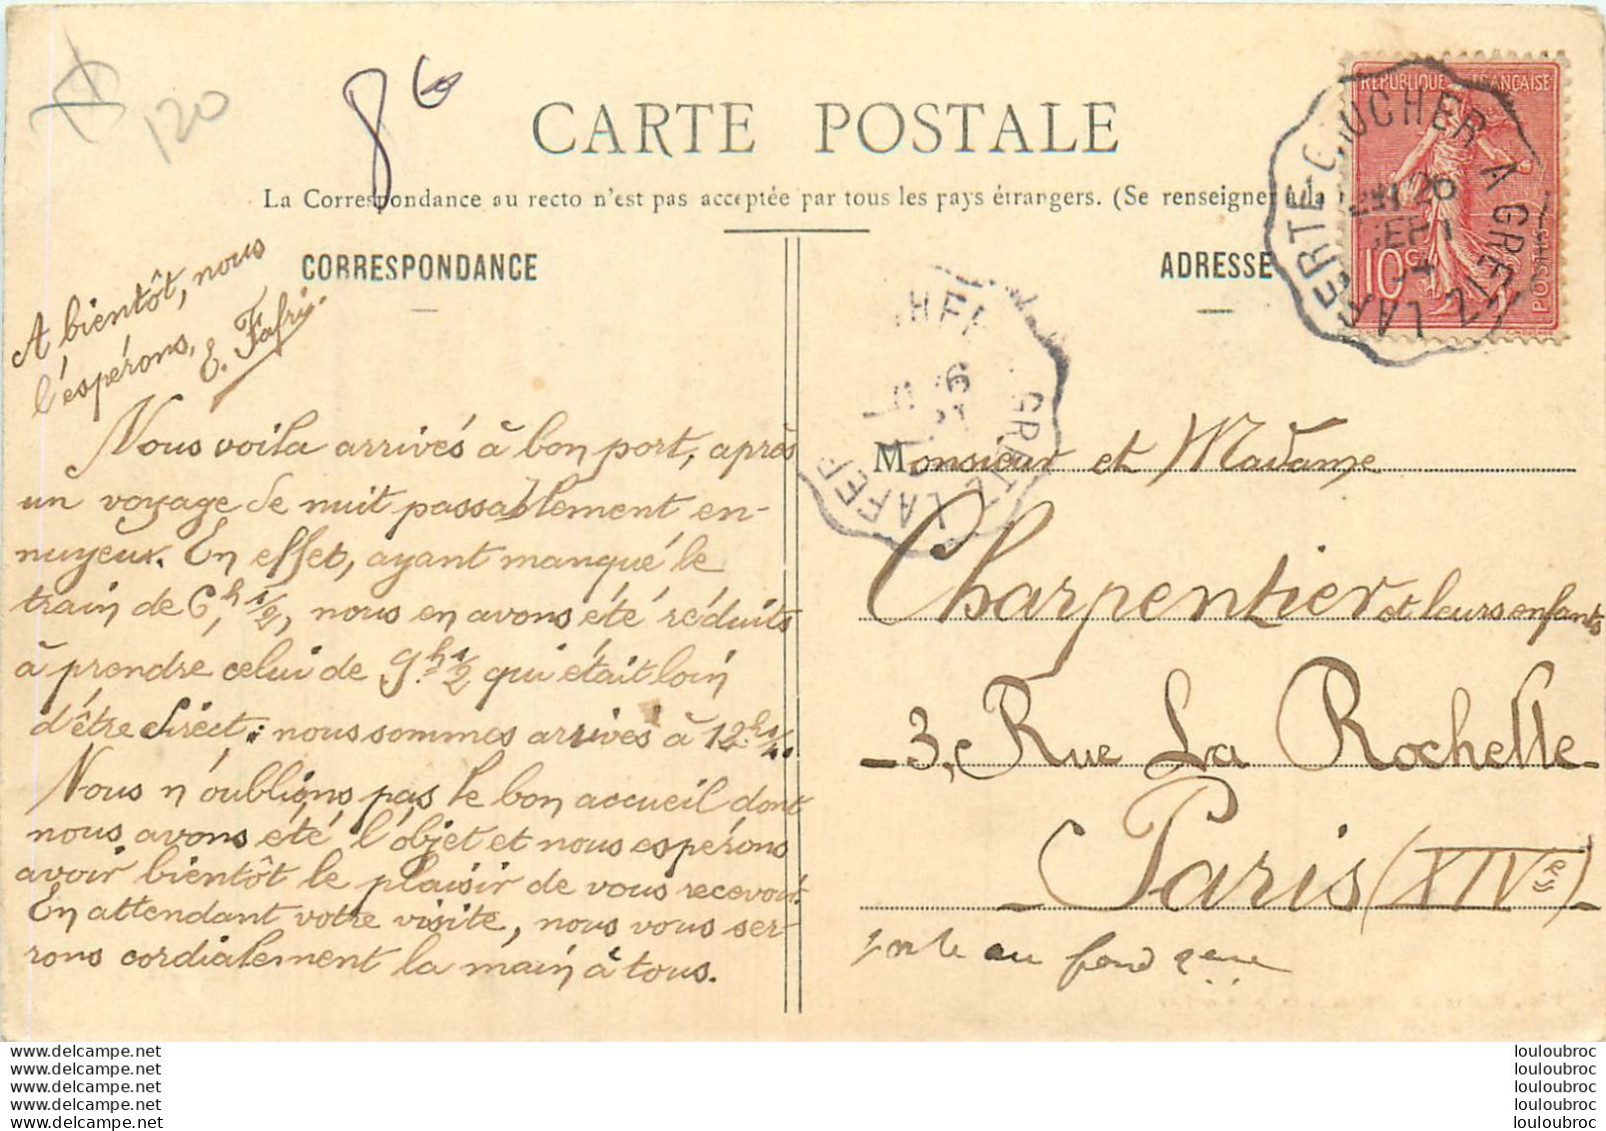 120
86
CARTE POSTALE
La Correspondance au recto n'est pas acceptée par tous les pays étrangers. (Se renseigner à la
CORRESPONDANCE
ADRESSE
REPUBLIQUE FRANÇAISE
10c
POSTES
LAFERTE GAUCHER A GRETZ
26
SEPT
A bientôt, nous
l'espérons,
E. Fafri
Nous voila arrivés à bon port, après
un voyage de nuit passablement en-
nuyeux. En effet, ayant manqué le
train de 6h 1/2, nous en avons été réduits
à prendre celui de 9h 1/2 qui était loin
d'être direct: nous sommes arrivés à 12h 1/2.
Nous n'oublions pas le bon accueil dont
nous avons été l'objet et nous espérons
avoir bientôt le plaisir de vous recevoir.
En attendant votre visite, nous vous ser-
rons cordialement la main à tous.
GRETZ
LAFER
Monsieur et Madame
Charpentier et leurs enfants
3, Rue La Rochelle
Paris (XIVe)
porte au fond 2eme
www.delcampe.net
www.delcampe.net
www.delcampe.net
www.delcampe.net
www.delcampe.net
louloubroc
louloubroc
louloubroc
louloubroc
louloubroc